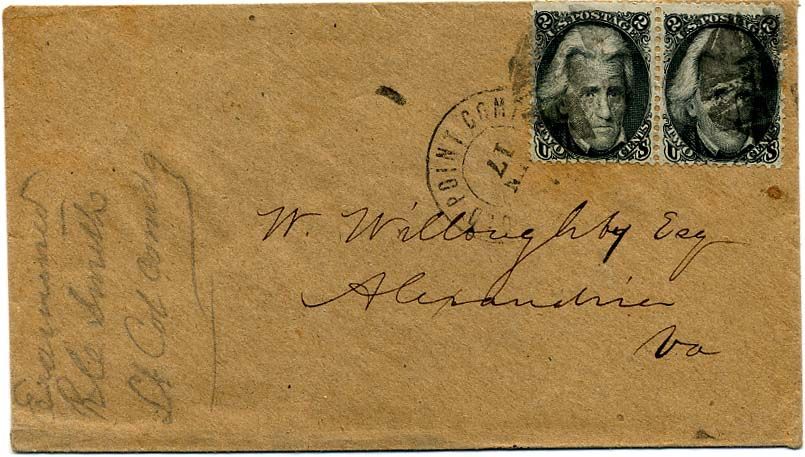 2 U.S. POSTAGE 2
2 U.S. POSTAGE 2
U TWO CENTS S
U TWO CENTS S
POINT COM
17
W. Willoughby Esq
Alexandria
Va
Examined
Smith
Lt Col Comdg